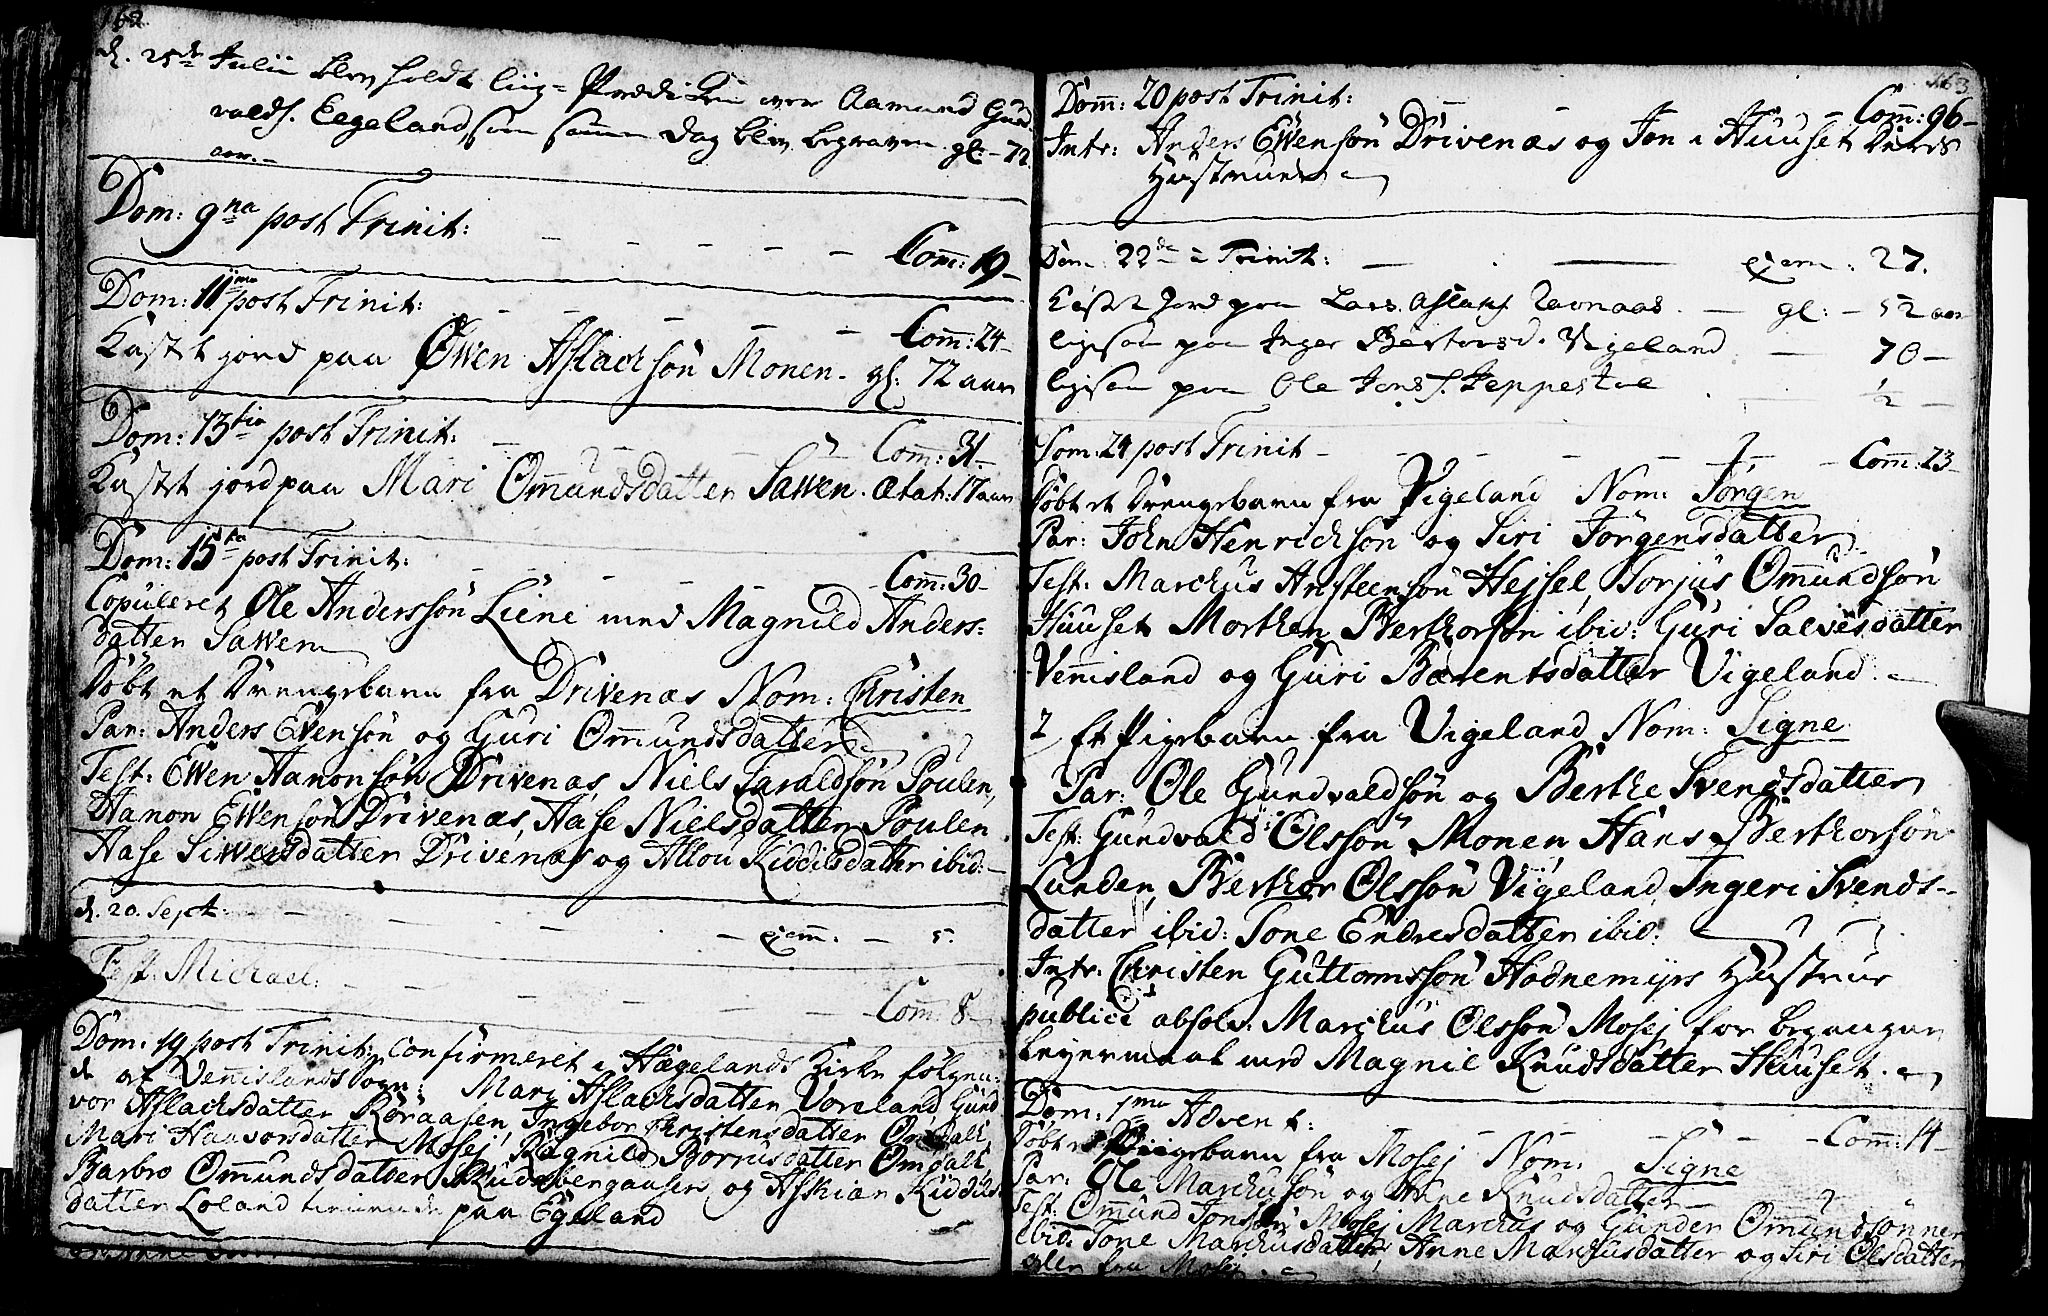 162.
d. 25de Julii blev holdt Liig-Prædiken over Aamund Gund
valds. Eegeland, som samme dag blev begraven. gl. 72
aar.
Dom: 9na post Trinit: Com̄: 19
Dom: 11ma post Trinit: Com̄: 24
Kastet jord paa Øwen Aslachsøn Monen. gl: 72 aar
Dom: 13tia post Trinit: Com̄: 31
Kastet jord paa Mari Om̄undsdatter Sawen. Ætat: 17 aar
Dom: 15ta post Trinit: Com̄: 30
Copuleret Ole Anderssøn Liene med Magnild Anders:
datter Sawen
Døbt et Drengebarn fra Drivenæs Nom: Christen
Par: Anders Evensøn og Guri Om̄undsdatter
Test: Ewen Aanonsøn Drivenæs, Niels Taraldsøn Poulen,
Hanon Ewensøn Drivenæs, Aase Nielsdatter Poulen
Aase Siwersdatter Drivenæs og Allou Kiddilsdatter ibid:
d. 20. Sept: 5.
Fest: Michael: Com̄: 8
Dom: 19 post Trinit: Confirmeret i Hægelands Kirke følgen:
de af Ven̄islands sogn: Mari Aslachsdatter Voreland, Gund
vor Aslachsdatter Røraasen, Ingebor Christensdatter Omdal,
Mari Haavorsdatter Mosej, Ragnild Borrusdatter Omdal,
Barbro Om̄undsdatter og Askiær Kiddils
datter Loland tienende paa Egeland
163
Dom̄: 20 post Trinit: Com̄: 96
Intr: Anders Ewensøn Drivenæs og Jon i Huuset Deres
Hustruer
Dom: 22de à Trinit: 27.
Kastet Jord paa Lars Aslaks. Ravnaas gl: 52 aar
ligesaa paa Inger Bertorsd. Vigeland 70
ligesaa paa Ole Jons S. Heppestøl 1/2
Dom: 24 post Trinit Com̄: 23
Døbt et Drengebarn fra Vigeland Nom: Jørgen
Par: John Henrichsøn og Siri Jørgensdatter
Test: Marchus Ansteensøn Hejsel, Torjus Om̄undsøn
Huuset Morthen Berthorsøn ibid: Guri Salvesdatter
Ven̄island og Guri Bærentsdatter Vigeland
2 Et Pigebarn fra Vigeland Nom: Signe
Par: Ole Gundvaldsøn og Berthe Svendsdatter
Test: Gundvald Olssøn Monen Hans Berthorsøn
Lunden, Berthor Olssøn Vigeland, Ingeri Svends-
datter ibid: Tone Endresdatter ibid:
Intr: Christen Guttormssøn Hodnemyrs Hustrue
publicé absolv: Marchus Olssøn Mosej for begangen
Leyermaal med Magnil Knudsdatter Huuset.
Dom: 1ma Advent: Com̄: 14
Døbt et Piigebarn fra Mosej Nom: Signe
Par: Ole Marchusøn og Anne Knudsdatter
Test: Om̄und Jonssøn Mosej Marchus og Gunder Om̄undsønner
ibid: Tone Marchusdatter, Anne Marchusdatter og Siri Olsdatter
alle fra Mosej